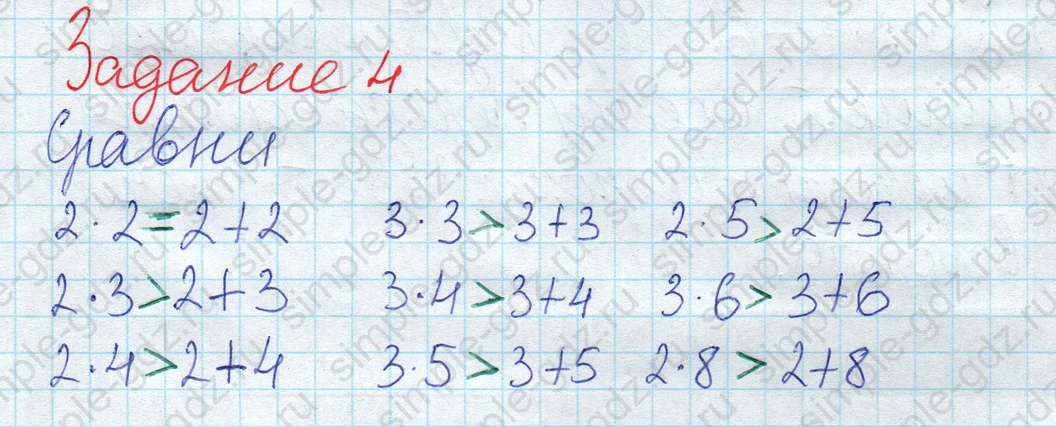 Задание 4
Сравни
2·2=2+2 3·3>3+3 2·5>2+5
2·3>2+3 3·4>3+4 3·6>3+6
2·4>2+4 3·5>3+5 2·8>2+8
simple-gdz.ru